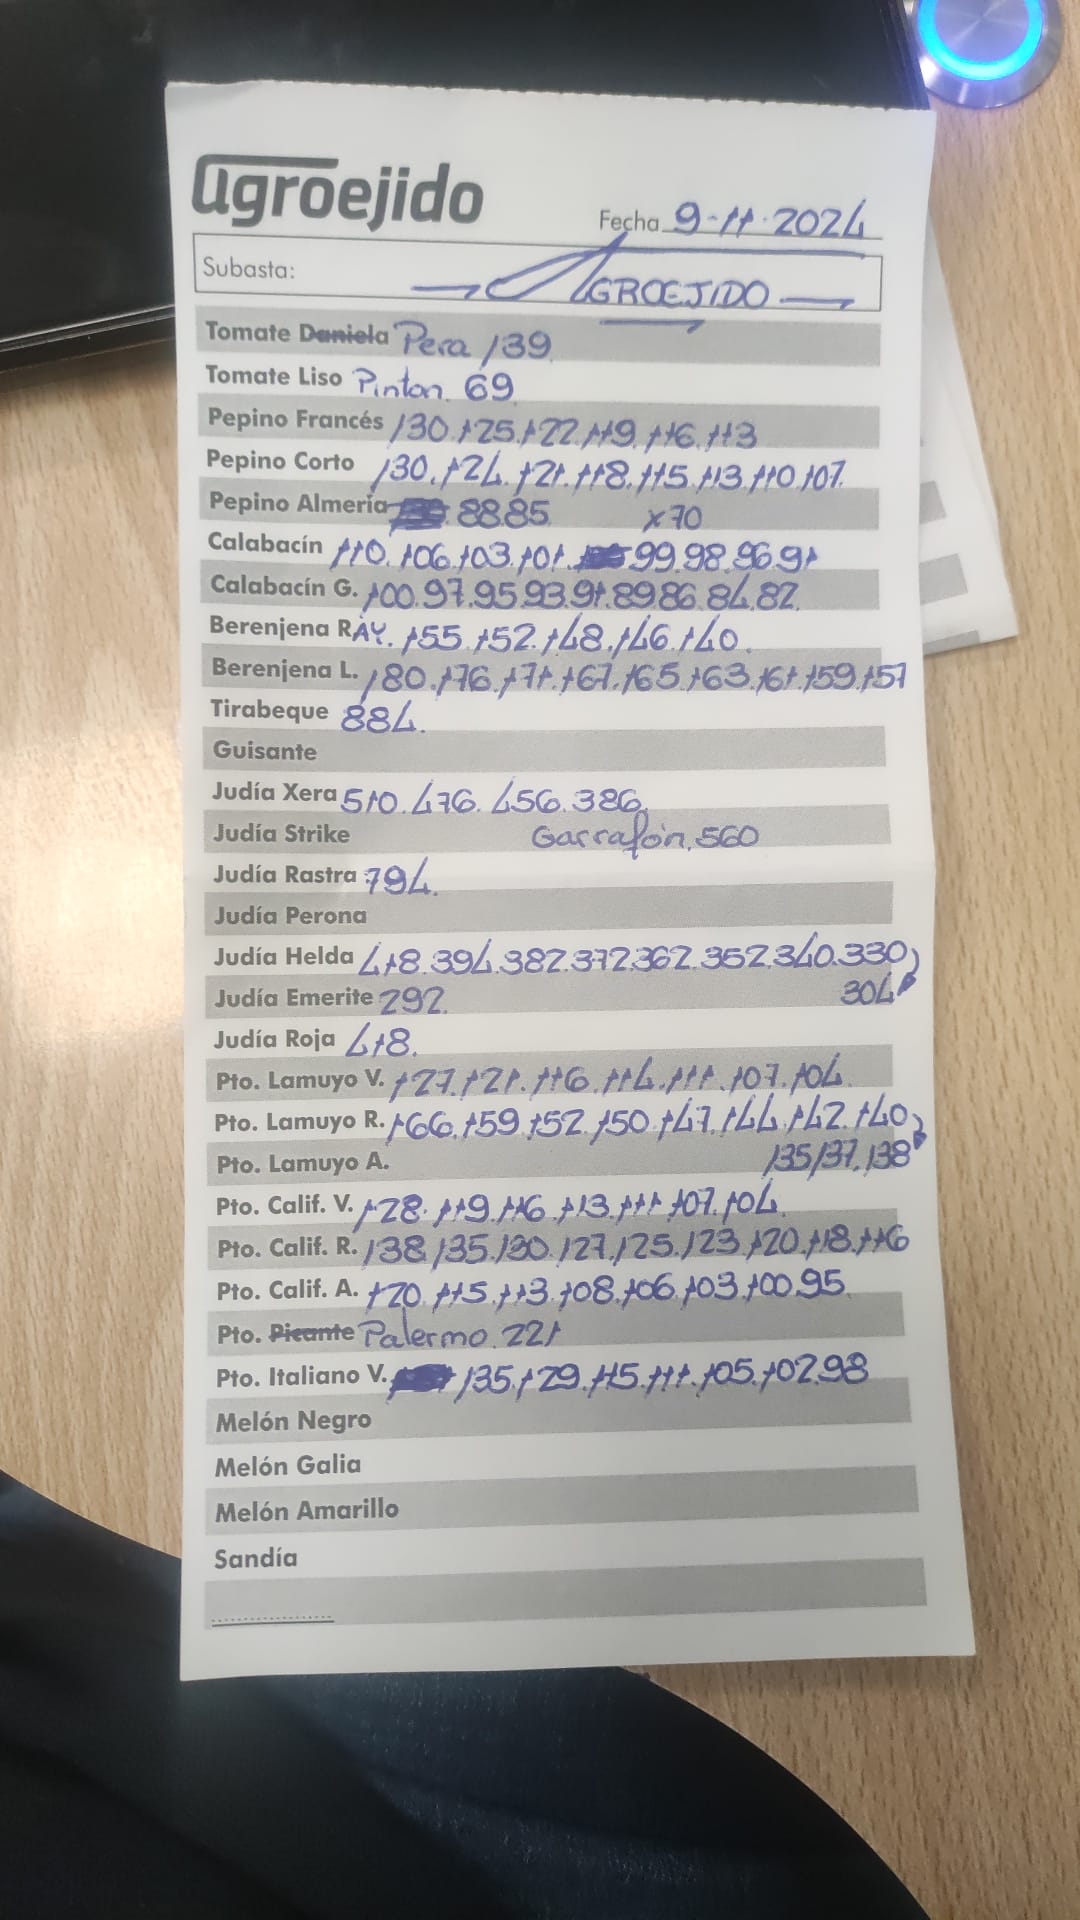 agroejido
Fecha 9-11-2024
Subasta: AGROEJIDO
Tomate Daniela Pera 139
Tomate Liso Pinton. 69
Pepino Francés 130.125.122.119.116.113
Pepino Corto 130.124.121.118.115.113.110.107.
Pepino Almería 88.85 x70
Calabacín 110.106.103.101. 99.98.96.91
Calabacín G. 100.97.95.93.91.89.86.84.82.
Berenjena RAY. 155.152.148.146.140.
Berenjena L. 180.176.171.167.165.163.161.159.157
Tirabeque 884.
Guisante
Judía Xera 510.476.456.386.
Judía Strike Garrafón.560
Judía Rastra 794.
Judía Perona
Judía Helda 418.394.382.372.362.352.340.330
Judía Emerite 292. 304
Judía Roja 418.
Pto. Lamuyo V. 127.121.116.114.111.107.104.
Pto. Lamuyo R. 166.159.152.150.147.144.142.140
Pto. Lamuyo A. 135/137.138
Pto. Calif. V. 128.119.116.113.111.107.104.
Pto. Calif. R. 138.135.130.127.125.123.120.118.116
Pto. Calif. A. 120.115.113.108.106.103.100.95.
Pto. Picante Palermo.221
Pto. Italiano V. 135.129.115.111.105.102.98
Melón Negro
Melón Galia
Melón Amarillo
Sandía